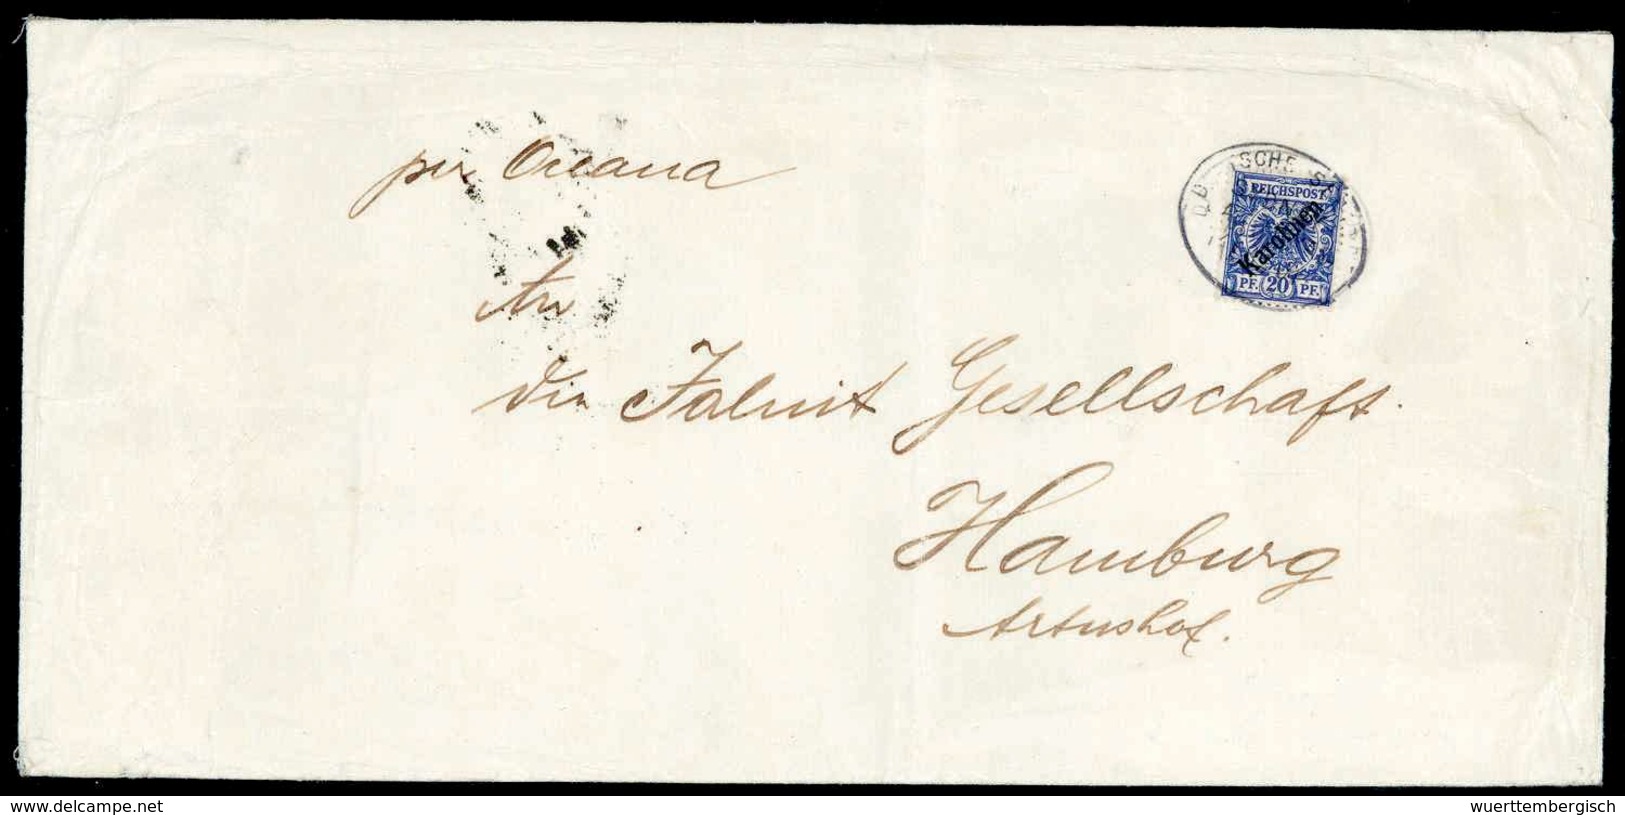 per Oceana
REICHSPOST
Karolinen
PF. 20 PF.
An
die Jaluit Gesellschaft.
Hamburg
Artushof.
www.delcampe.net
wuerttembergisch